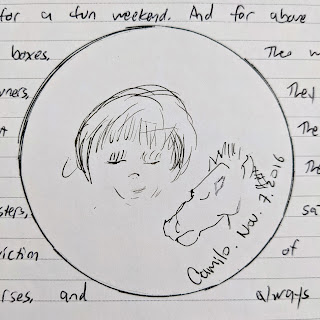 for a fun weekend. And for above
boxes, The
ners, They
The
The
sters, sa
of
rses, and always
Camilo. Nov. 7. 2016